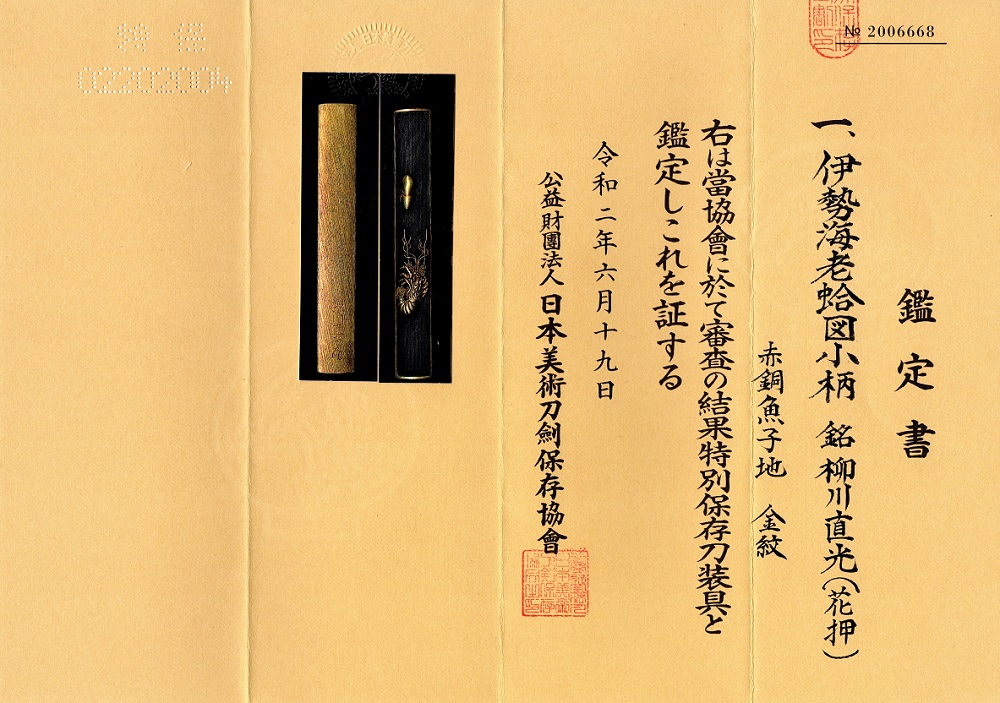 № 2006668
鑑定書
一、伊勢海老蛤図小柄　銘 柳川直光(花押)
赤銅魚子地　金紋
右は當協會に於て審査の結果特別保存刀装具と
鑑定しこれを証する
令和二年六月十九日
公益財團法人 日本美術刀劍保存協會
特 保
02202004